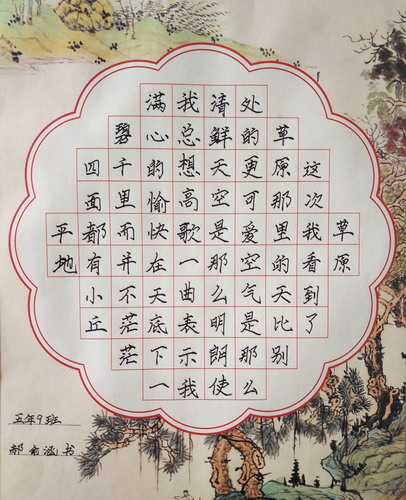 草原
这次我看到了
草原那里的天比别
处的更可爱空气是那么
清鲜天空是那么明朗使
我总想高歌一曲表示我
满心的愉快在天底下一
碧千里而并不茫茫
四面都有小丘
平地
五年9班
郝 涵 书